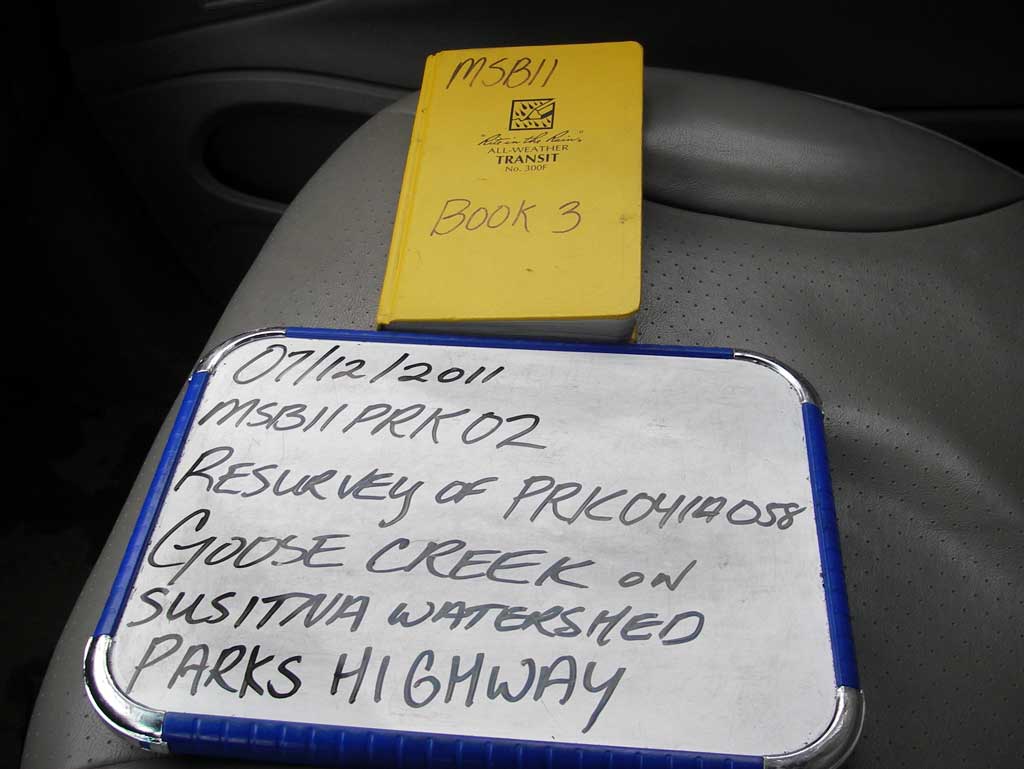 MSB11
"Rite in the Rain"
ALL-WEATHER
TRANSIT
No. 300F
BOOK 3
07/12/2011
MSB11PRK02
RESURVEY OF PRK041A058
GOOSE CREEK ON
SUSITNA WATERSHED
PARKS HIGHWAY